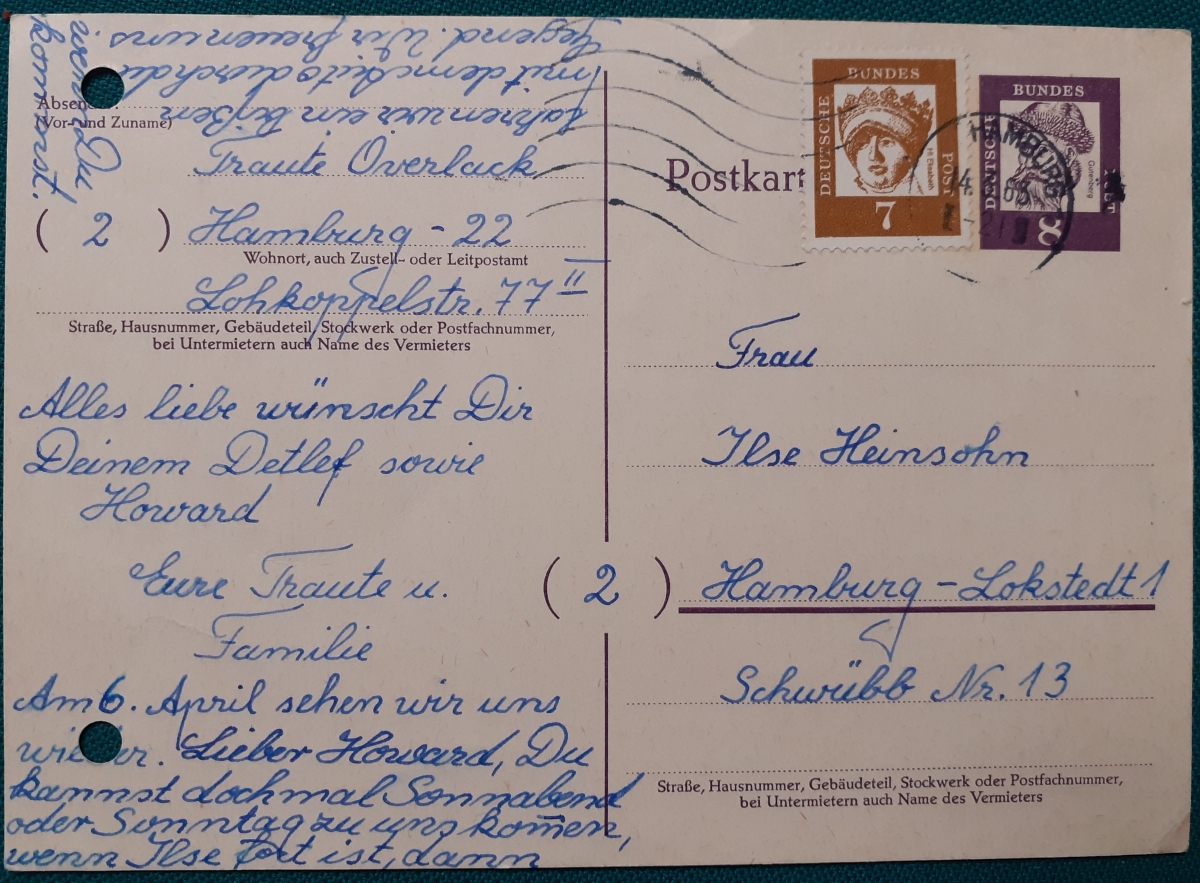 Absender:
(Vor- und Zuname)
Traute Overlack
( 2 ) Hamburg - 22
Wohnort, auch Zustell- oder Leitpostamt
Lohkoppelstr. 77 II
Straße, Hausnummer, Gebäudeteil, Stockwerk oder Postfachnummer,
bei Untermietern auch Name des Vermieters
Alles liebe wünscht Dir
Deinem Detlef sowie
Howard
Eure Traute u.
Familie
Am 6. April sehen wir uns
wieder. Lieber Howard, Du
kannst doch mal Sonnabend
oder Sonntag zu uns kom̅en,
wenn Ilse fort ist, dann
fahren wir ein bißen
mit dem Auto durch die
Gegend. Wir freuen uns.
wenn Du
kommst.
Postkart
DEUTSCHE
BUNDES
POST
Hl. Elisabeth
7
DEUTSCHE
BUNDES
POST
Gutenberg
8
HAMBURG
14.
63
-21
Frau
Ilse Heinsohn
( 2 ) Hamburg - Lokstedt 1
Schwübb Nr. 13
Straße, Hausnummer, Gebäudeteil, Stockwerk oder Postfachnummer,
bei Untermietern auch Name des Vermieters